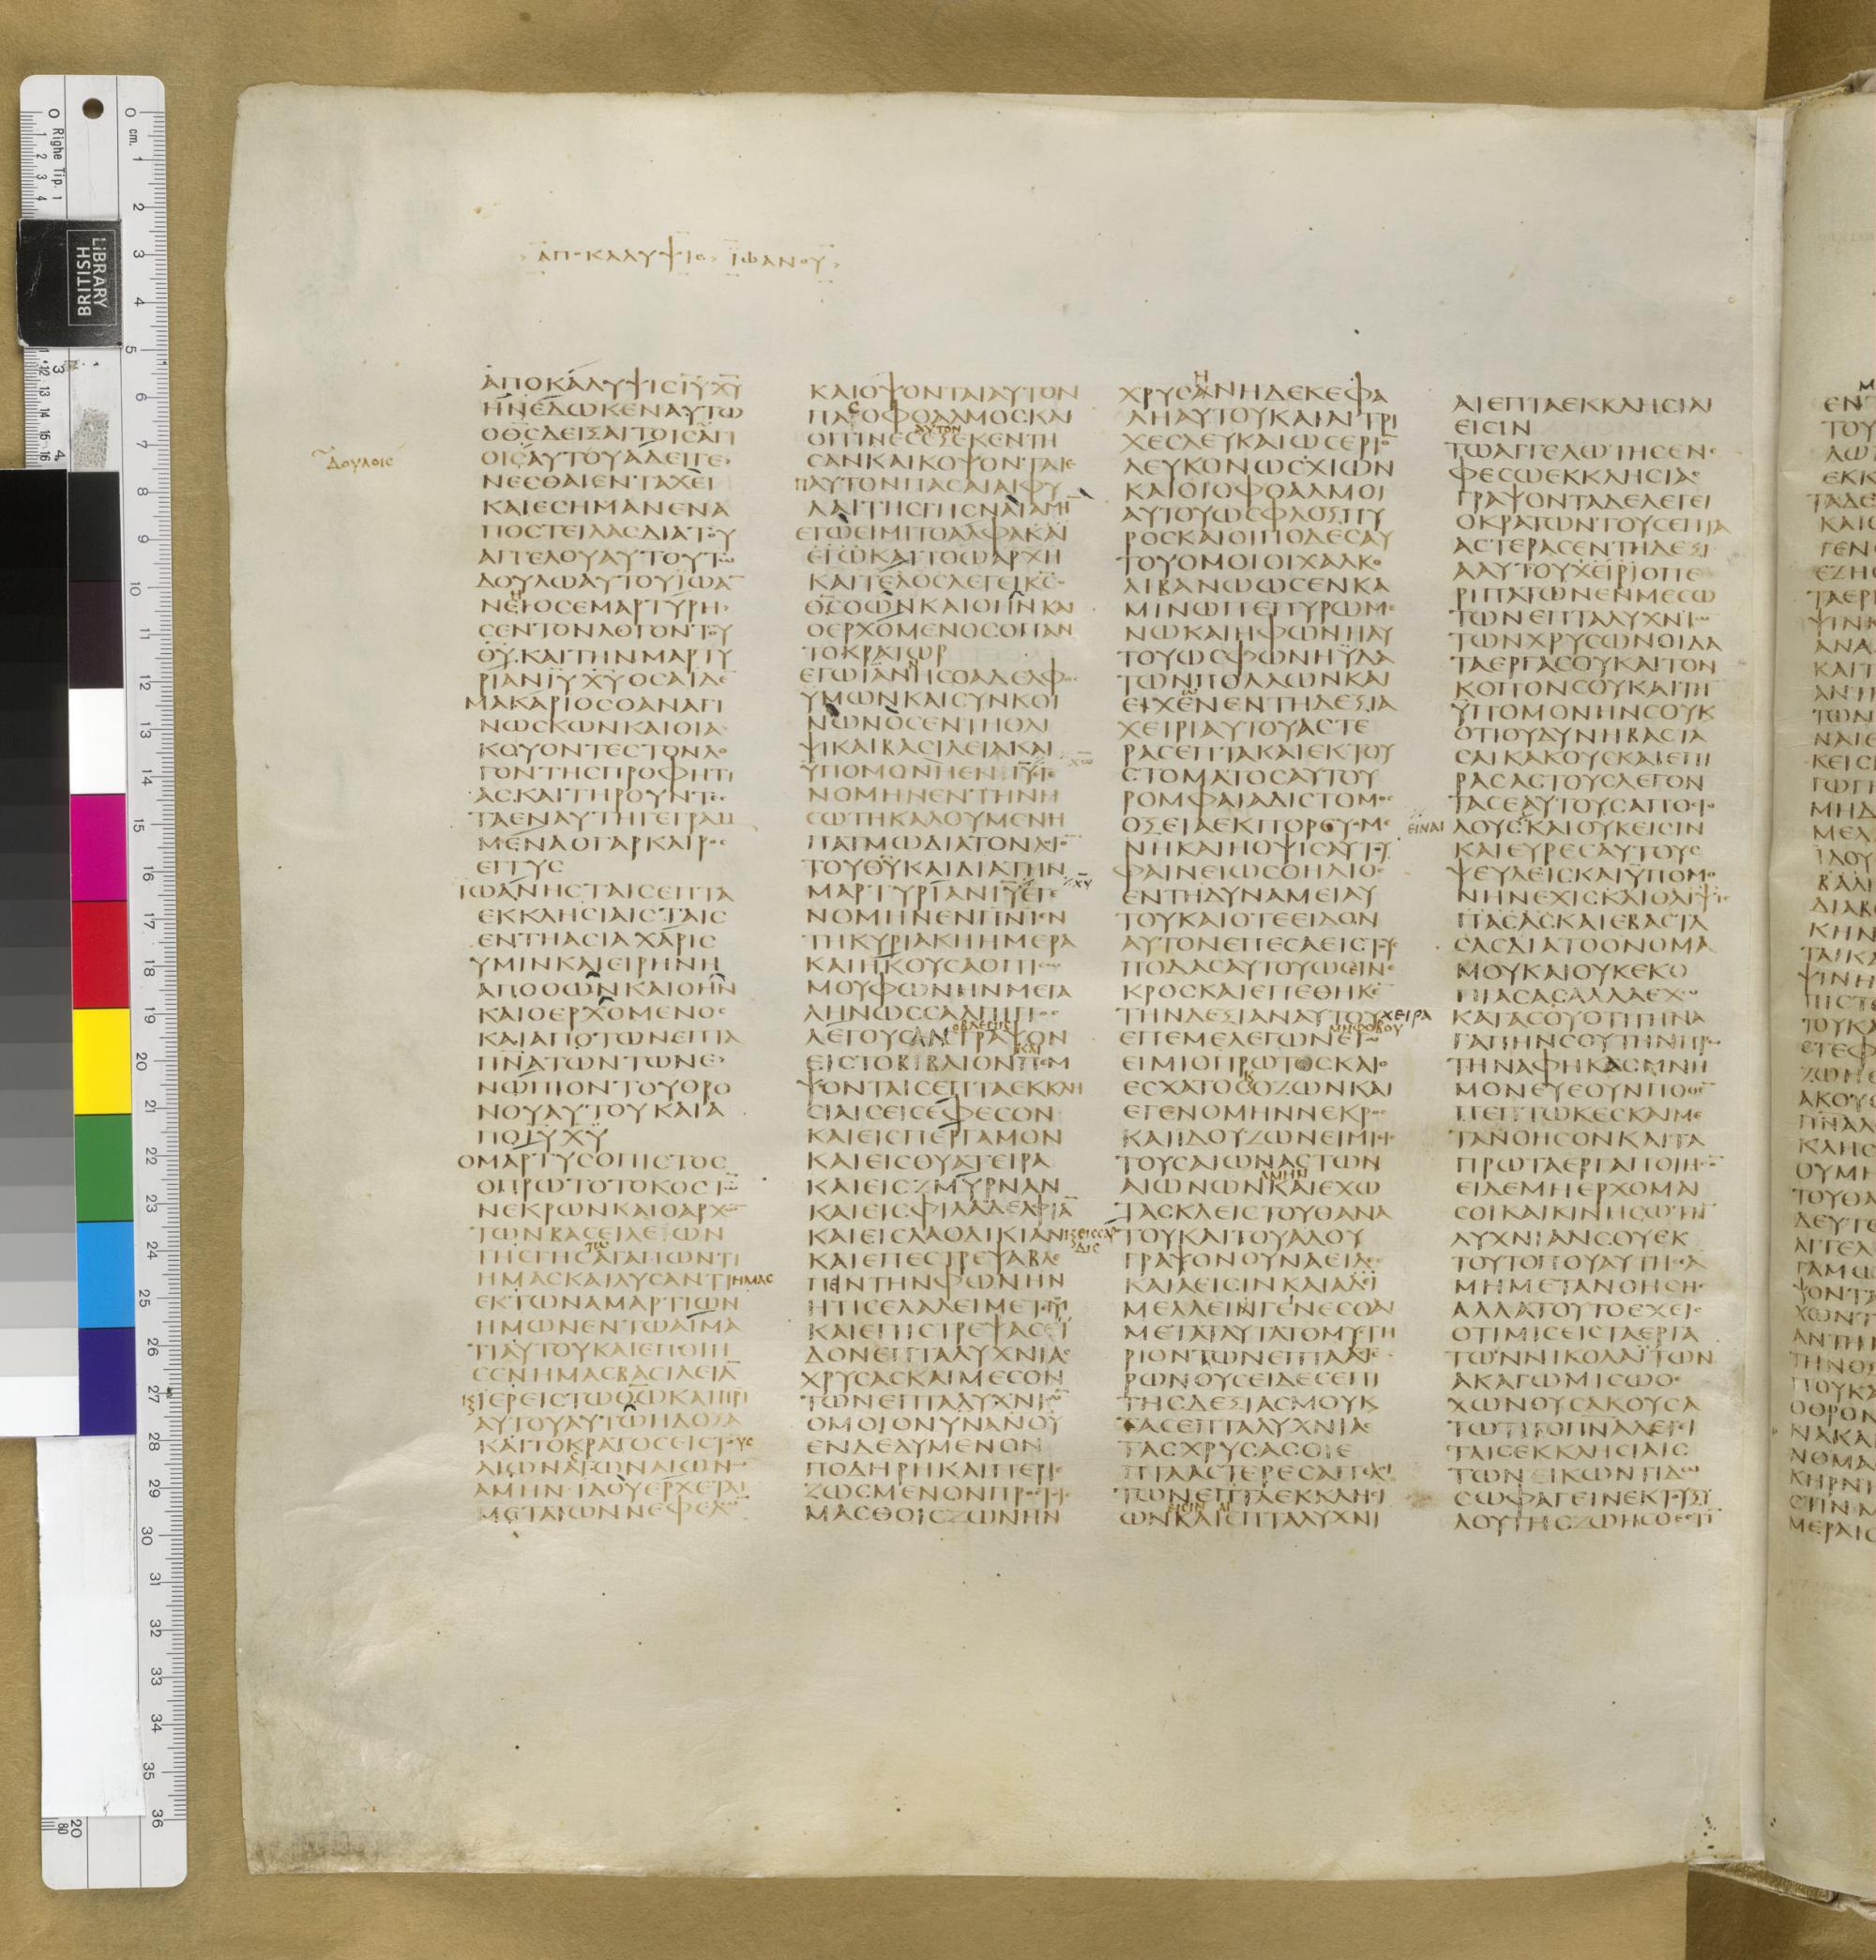 ΑΠΟΚΑΛΥΨΙϹ ΙΩΑΝΟΥ
ΑΠΟΚΑΛΥΨΙϹΙΥΧΥ
ΗΝΕΔΩΚΕΝΑΥΤΩ
ΟΘϹΔΕΙΞΑΙΤΟΙϹΑΓΙ
ΔΟΥΛΟΙϹ
ΟΙϹΑΥΤΟΥΑΔΕΙΓΕ
ΝΕϹΘΑΙΕΝΤΑΧΕΙ
ΚΑΙΕϹΗΜΑΝΕΝΑ
ΠΟϹΤΕΙΛΑϹΔΙΑΤΟΥ
ΑΓΓΕΛΟΥΑΥΤΟΥΤΩ
ΔΟΥΛΩΑΥΤΟΥΙΩΑ
ΝΕΙΟϹΕΜΑΡΤΥΡΗ
ϹΕΝΤΟΝΛΟΓΟΝΤΟΥ
ΘΥ·ΚΑΙΤΗΝΜΑΡΤΥ
ΡΙΑΝΙΥΧΥΟϹΑΙΔΕ
ΜΑΚΑΡΙΟϹΟΑΝΑΓΙ
ΝΩϹΚΩΝΚΑΙΟΙΑ
ΚΟΥΟΝΤΕϹΤΟΝΛΟ
ΓΟΝΤΗϹΠΡΟΦΗΤΙ
ΑϹ·ΚΑΙΤΗΡΟΥΝΤΕϹ
ΤΑΕΝΑΥΤΗΓΕΓΡΑΜ
ΜΕΝΑΟΓΑΡΚΑΙΡΟϹ
ΕΓΓΥϹ
ΙΩΑΝΗϹΤΑΙϹΕΠΤΑ
ΕΚΚΛΗϹΙΑΙϹΤΑΙϹ
ΕΝΤΗΑϹΙΑΧΑΡΙϹ
ΥΜΙΝΚΑΙΕΙΡΗΝΗ
ΑΠΟΟΩΝΚΑΙΟΗΝ
ΚΑΙΟΕΡΧΟΜΕΝΟϹ
ΚΑΙΑΠΟΤΩΝΕΠΤΑ
ΠΝΑΤΩΝΤΩΝΕ
ΝΩΠΙΟΝΤΟΥΘΡΟ
ΝΟΥΑΥΤΟΥΚΑΙΑ
ΠΟΙΥΧΥ
ΟΜΑΡΤΥϹΟΠΙϹΤΟϹ
ΟΠΡΩΤΟΤΟΚΟϹΤΩ
ΝΕΚΡΩΝΚΑΙΟΑΡΧΩ
ΤΩΝΒΑϹΕΙΛΕΙΩΝ
ΤΗϹΓΗϹΑΓΑΠΩΝΤΙ
ΗΜΑϹΚΑΙΛΥϹΑΝΤΙΗΜΑϹ
ΕΚΤΩΝΑΜΑΡΤΙΩΝ
ΗΜΩΝΕΝΤΩΑΙΜΑ
ΤΙΑΥΤΟΥΚΑΙΕΠΟΙΗ
ϹΕΝΗΜΑϹΒΑϹΙΛΕΙΑ
ΙΕΡΕΙϹΤΩΘΩΚΑΙΠΡΙ
ΑΥΤΟΥΑΥΤΩΗΔΟΞΑ
ΚΑΙΤΟΚΡΑΤΟϹΕΙϹΤΟΥϹ
ΑΙΩΝΑϹΤΩΝΑΙΩΝΩ
ΑΜΗΝ·ΙΔΟΥΕΡΧΕΤΑΙ
ΜΕΤΑΤΩΝΝΕΦΕΛΩ
ΚΑΙΟΨΟΝΤΑΙΑΥΤΟΝ
ΠΑϹΟΦΘΑΛΜΟϹΚΑΙ
ΑΥΤΟΝ
ΟΙΤΙΝΕϹΕΞΕΚΕΝΤΗ
ϹΑΝΚΑΙΚΟΨΟΝΤΑΙΕ
ΠΑΥΤΟΝΠΑϹΑΙΑΙΦΥ
ΛΑΙΤΗϹΓΗϹΝΑΙΑΜΗ
ΕΓΩΕΙΜΙΤΟΑΛΦΑΚΑΙ
ΕΓΩΚΑΙΤΟΩΑΡΧΗ
ΚΑΙΤΕΛΟϹΛΕΓΕΙΚϹ
ΟΘϹΟΩΝΚΑΙΟΗΝΚΑΙ
ΟΕΡΧΟΜΕΝΟϹΟΠΑΝ
ΤΟΚΡΑΤΩΡ
ΕΓΩΙΑΝΗϹΟΑΔΕΛΦΟϹ
ΥΜΩΝΚΑΙϹΥΝΚΟΙ
ΝΩΝΟϹΕΝΤΗΘΛΙ
ΨΙΚΑΙΒΑϹΙΛΕΙΑΚΑΙ
ΥΠΟΜΟΝΗΕΝΙΥΕ
ΝΟΜΗΝΕΝΤΗΝΗ
ϹΩΤΗΚΑΛΟΥΜΕΝΗ
ΠΑΤΜΩΔΙΑΤΟΝΛΟΓΟ
ΤΟΥΘΥΚΑΙΔΙΑΤΗΝ
ΜΑΡΤΥΡΙΑΝΙΥΕΓΕ
ΧΥ
ΝΟΜΗΝΕΝΠΝΙΕΝ
ΤΗΚΥΡΙΑΚΗΗΜΕΡΑ
ΚΑΙΗΚΟΥϹΑΟΠΙϹΩ
ΜΟΥΦΩΝΗΝΜΕΓΑ
ΛΗΝΩϹϹΑΛΠΙΓΓΟϹ
ΛΕΓΟΥϹΑΝΓΡΑΨΟΝ
ΕΙϹΤΟΒΙΒΛΙΟΝΠΕΜ
ΨΟΝΤΑΙϹΕΠΤΑΕΚΚΛΗ
ϹΙΑΙϹΕΙϹΕΦΕϹΟΝ
ΚΑΙΕΙϹΠΕΡΓΑΜΟΝ
ΚΑΙΕΙϹΘΥΑΤΕΙΡΑ
ΚΑΙΕΙϹΖΜΥΡΝΑΝ
ΚΑΙΕΙϹΦΙΛΑΔΕΛΦΙΑ
ΚΑΙΕΙϹΛΑΟΔΙΚΙΑΝ
ΚΑΙΕΠΕϹΤΡΕΨΑΒΛΕ
ΠΕΝΤΗΝΦΩΝΗΝ
ΗΤΙϹΕΛΑΛΕΙΜΕΤΕΜΟΥ
ΚΑΙΕΠΙϹΤΡΕΨΑϹΕΙ
ΔΟΝΕΠΤΑΛΥΧΝΙΑϹ
ΧΡΥϹΑϹΚΑΙΜΕϹΟΝ
ΤΩΝΕΠΤΑΛΥΧΝΙΩ
ΟΜΟΙΟΝΥΝΑΝΟΥ
ΕΝΔΕΔΥΜΕΝΟΝ
ΠΟΔΗΡΗΚΑΙΠΕΡΙΕ
ΖΩϹΜΕΝΟΝΠΡΟϹΤΟΙϹ
ΜΑϹΘΟΙϹΖΩΝΗΝ
ΧΡΥϹΑΝΗΔΕΚΕΦΑ
ΛΗΑΥΤΟΥΚΑΙΑΙΤΡΙ
ΧΕϹΛΕΥΚΑΙΩϹΕΡΙΟ
ΛΕΥΚΟΝΩϹΧΙΩΝ
ΚΑΙΟΙΟΦΘΑΛΜΟΙ
ΑΥΤΟΥΩϹΦΛΟΞΠΥ
ΡΟϹΚΑΙΟΙΠΟΔΕϹΑΥ
ΤΟΥΟΜΟΙΟΙΧΑΛΚΟ
ΛΙΒΑΝΩΩϹΕΝΚΑ
ΜΙΝΩΠΕΠΥΡΩΜΕ
ΝΩΚΑΙΗΦΩΝΗΑΥ
ΤΟΥΩϹΦΩΝΗΥΔΑ
ΤΩΝΠΟΛΛΩΝΚΑΙ
ΕΙΧΕΝΕΝΤΗΔΕΞΙΑ
ΧΕΙΡΙΑΥΤΟΥΑϹΤΕ
ΡΑϹΕΠΤΑΚΑΙΕΚΤΟΥ
ϹΤΟΜΑΤΟϹΑΥΤΟΥ
ΡΟΜΦΑΙΑΔΙϹΤΟΜΟϹ
ΟΞΕΙΑΕΚΠΟΡΕΥΟΜΕ
ΝΗΚΑΙΗΟΨΙϹΑΥΤΟΥ
ΦΑΙΝΕΙΩϹΟΗΛΙΟϹ
ΕΝΤΗΔΥΝΑΜΕΙΑΥ
ΤΟΥΚΑΙΟΤΕΕΙΔΟΝ
ΑΥΤΟΝΕΠΕϹΑΕΙϹΤΟΥ
ΠΟΔΑϹΑΥΤΟΥΩϹΕΙΝΕ
ΚΡΟϹΚΑΙΕΠΕΘΗΚΕ
ΤΗΝΔΕΞΙΑΝΑΥΤΟΥΧΕΙΡΑ
ΜΗΦΟΒΟΥ
ΕΠΕΜΕΛΕΓΩΝΕΓΩ
ΕΙΜΙΟΠΡΩΤΟϹΚΑΙΟ
ΕϹΧΑΤΟϹΟΖΩΝΚΑΙ
ΕΓΕΝΟΜΗΝΝΕΚΡΟϹ
ΚΑΙΙΔΟΥΖΩΝΕΙΜΙΕΙϹ
ΤΟΥϹΑΙΩΝΑϹΤΩΝ
ΑΜΗΝ
ΑΙΩΝΩΝΚΑΙΕΧΩ
ΤΑϹΚΛΕΙϹΤΟΥΘΑΝΑ
ΤΟΥΚΑΙΤΟΥΑΔΟΥ
ΓΡΑΨΟΝΟΥΝΑΕΙΔΕϹ
ΚΑΙΑΕΙϹΙΝΚΑΙΑΔΕΙ
ΜΕΛΛΕΙΝΓΕΝΕϹΘΑΙ
ΜΕΤΑΤΑΥΤΑΤΟΜΥϹΤΗ
ΡΙΟΝΤΩΝΕΠΤΑΑϹΤΕ
ΡΩΝΟΥϹΕΙΔΕϹΕΠΙ
ΤΗϹΔΕΞΙΑϹΜΟΥΚ
ΤΑϹΕΠΤΑΛΥΧΝΙΑϹ
ΤΑϹΧΡΥϹΑϹΟΙΕ
ΠΤΑΑϹΤΕΡΕϹΑΓΓΕΛΟΙ
ΤΩΝΕΠΤΑΕΚΚΛΗϹΙ
ΕΙϹΙΝ ΑΙ
ΩΝΚΑΙΕΠΤΑΛΥΧΝΙ
ΑΙΕΠΤΑΕΚΚΛΗϹΙΑΙ
ΕΙϹΙΝ
ΤΩΑΓΓΕΛΩΤΗϹΕΝΕ
ΦΕϹΩΕΚΚΛΗϹΙΑϹ
ΓΡΑΨΟΝΤΑΔΕΛΕΓΕΙ
ΟΚΡΑΤΩΝΤΟΥϹΕΠΤΑ
ΑϹΤΕΡΑϹΕΝΤΗΔΕΞΙ
ΑΑΥΤΟΥΧΕΙΡΙΟΠΕ
ΡΙΠΑΤΩΝΕΝΜΕϹΩ
ΤΩΝΕΠΤΑΛΥΧΝΙΩ
ΤΩΝΧΡΥϹΩΝΟΙΔΑ
ΤΑΕΡΓΑϹΟΥΚΑΙΤΟΝ
ΚΟΠΟΝϹΟΥΚΑΙΤΗ
ΥΠΟΜΟΝΗΝϹΟΥΚ
ΟΤΙΟΥΔΥΝΗΒΑϹΤΑ
ϹΑΙΚΑΚΟΥϹΚΑΙΕΠΙ
ΡΑϹΑϹΤΟΥϹΛΕΓΟΝ
ΤΑϹΕΑΥΤΟΥϹΑΠΟϹΤΟ
ΕΙΝΑΙ
ΛΟΥϹΚΑΙΟΥΚΕΙϹΙΝ
ΚΑΙΕΥΡΕϹΑΥΤΟΥϹ
ΨΕΥΔΕΙϹΚΑΙΥΠΟΜΟ
ΝΗΝΕΧΙϹΚΑΙΘΛΙΨΙϹ
ΠΑϹΑϹΚΑΙΕΒΑϹΤΑ
ϹΑϹΔΙΑΤΟΟΝΟΜΑ
ΜΟΥΚΑΙΟΥΚΕΚΟ
ΠΙΑϹΑϹΑΛΛΑΕΧΩ
ΚΑΤΑϹΟΥΟΤΙΤΗΝΑ
ΓΑΠΗΝϹΟΥΤΗΝΠΡΩ
ΤΗΝΑΦΗΚΑϹΜΝΗ
ΜΟΝΕΥΕΟΥΝΠΟΘΕ
ΠΕΠΤΩΚΕϹΚΑΙΜΕ
ΤΑΝΟΗϹΟΝΚΑΙΤΑ
ΠΡΩΤΑΕΡΓΑΠΟΙΗϹΟ
ΕΙΔΕΜΗΕΡΧΟΜΑΙ
ϹΟΙΚΑΙΚΙΝΗϹΩΤΗ
ΛΥΧΝΙΑΝϹΟΥΕΚ
ΤΟΥΤΟΠΟΥΑΥΤΗϹΕΑ
ΜΗΜΕΤΑΝΟΗϹΗϹ
ΑΛΛΑΤΟΥΤΟΕΧΕΙϹ
ΟΤΙΜΙϹΕΙϹΤΑΕΡΓΑ
ΤΩΝΝΙΚΟΛΑΙΤΩΝ
ΑΚΑΓΩΜΙϹΩΟ
ΧΩΝΟΥϹΑΚΟΥϹΑ
ΤΩΤΙΤΟΠΝΑΛΕΓΕΙ
ΤΑΙϹΕΚΚΛΗϹΙΑΙϹ
ΤΩΝΕΙΚΩΝΤΙΔΩ
ϹΩΦΑΓΕΙΝΕΚΤΟΥΞΥ
ΛΟΥΤΗϹΖΩΗϹΟΕϹΤΙ